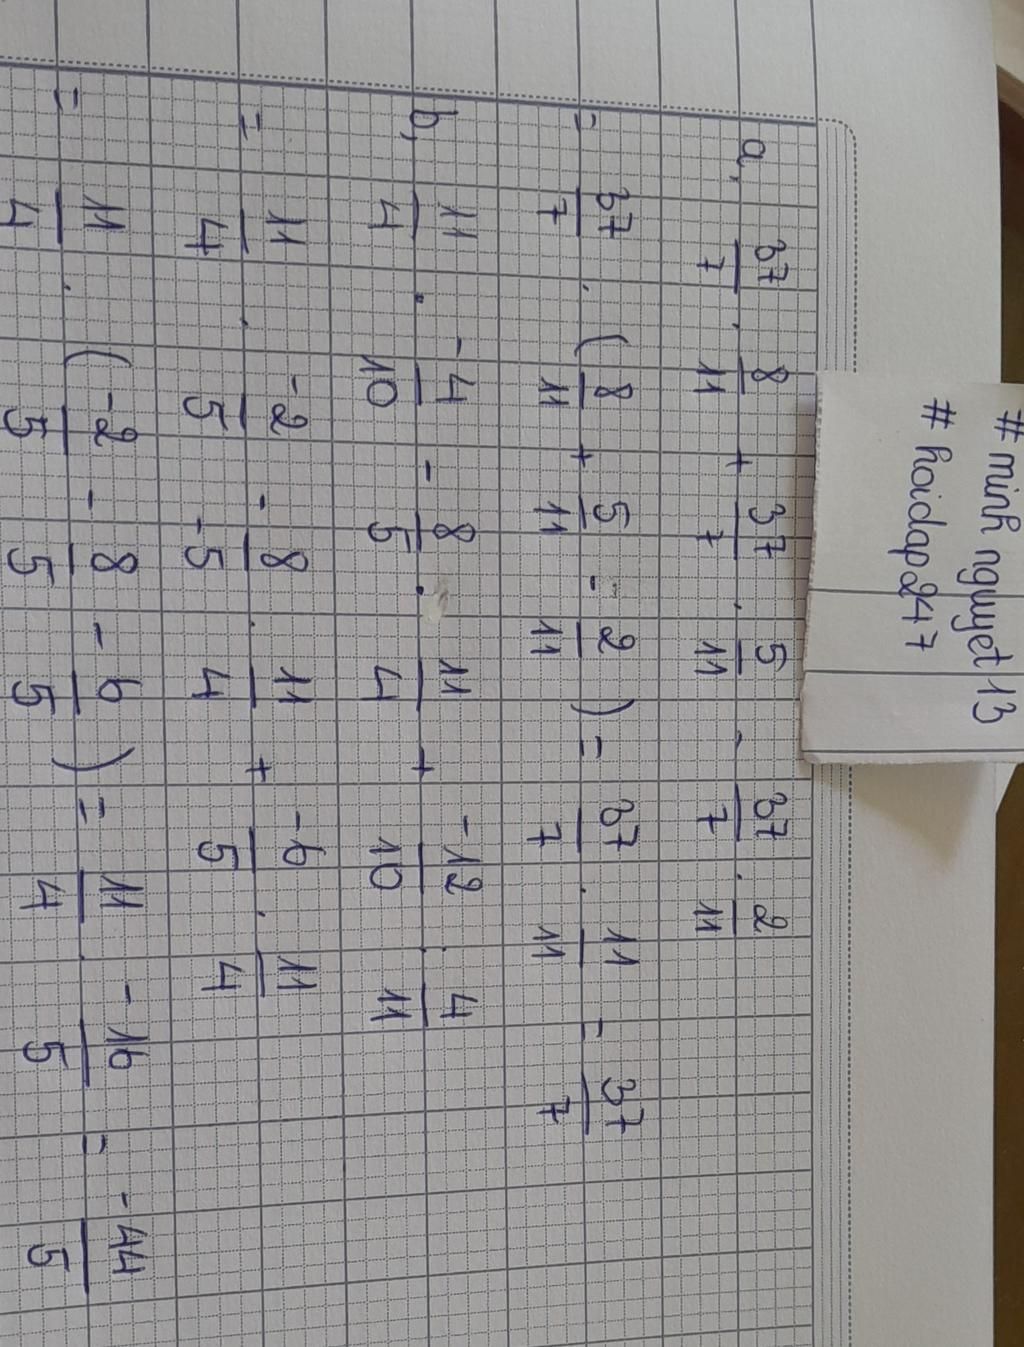 # minh nguyet 13
# hoidap247
a, 37/7 . 8/11 + 37/7 . 5/11 - 37/7 . 2/11
= 37/7 . (8/11 + 5/11 - 2/11) = 37/7 . 11/11 = 37/7
b, 11/4 . -4/10 - 8/5 . 11/4 + -12/10 : 4/11
= 11/4 . -2/5 - 8/-5 . 11/4 + -6/5 . 11/4
= 11/4 . (-2/5 - 8/5 - 6/5) = 11/4 . -16/5 = -44/5